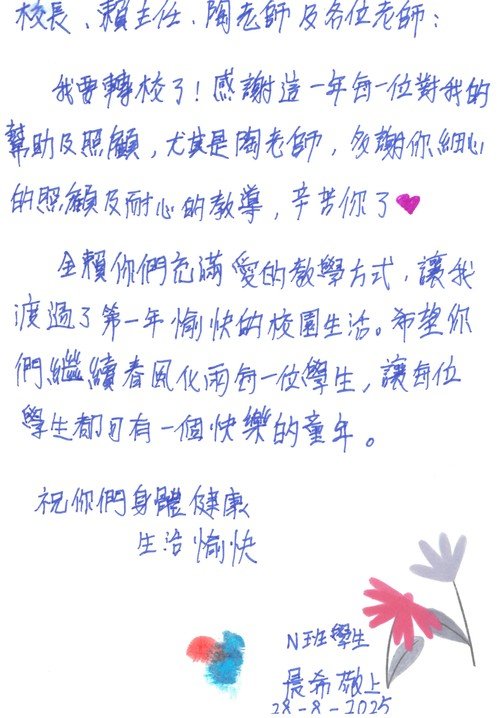 校長、賴主任、陶老師及各位老師：
我要轉校了！感謝這一年每一位對我的
幫助及照顧，尤其是陶老師，多謝你細心
的照顧及耐心的教導，辛苦你了
全賴你們充滿愛的教學方式，讓我
渡過了第一年愉快的校園生活。希望你
們繼續春風化雨每一位學生，讓每位
學生都可有一個快樂的童年。
祝你們身體健康
生活愉快
N班學生
晨希敬上
28-8-2025